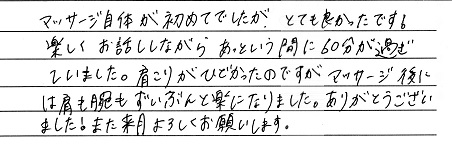 マッサージ自体が初めてでしたが、とても良かったです!
楽しくお話ししながらあっという間に60分が過ぎ
ていました。肩こりがひどかったのですがマッサージ後に
は肩も腕もずいぶんと楽になりました。ありがとうござい
ました!また来月よろしくお願いします。